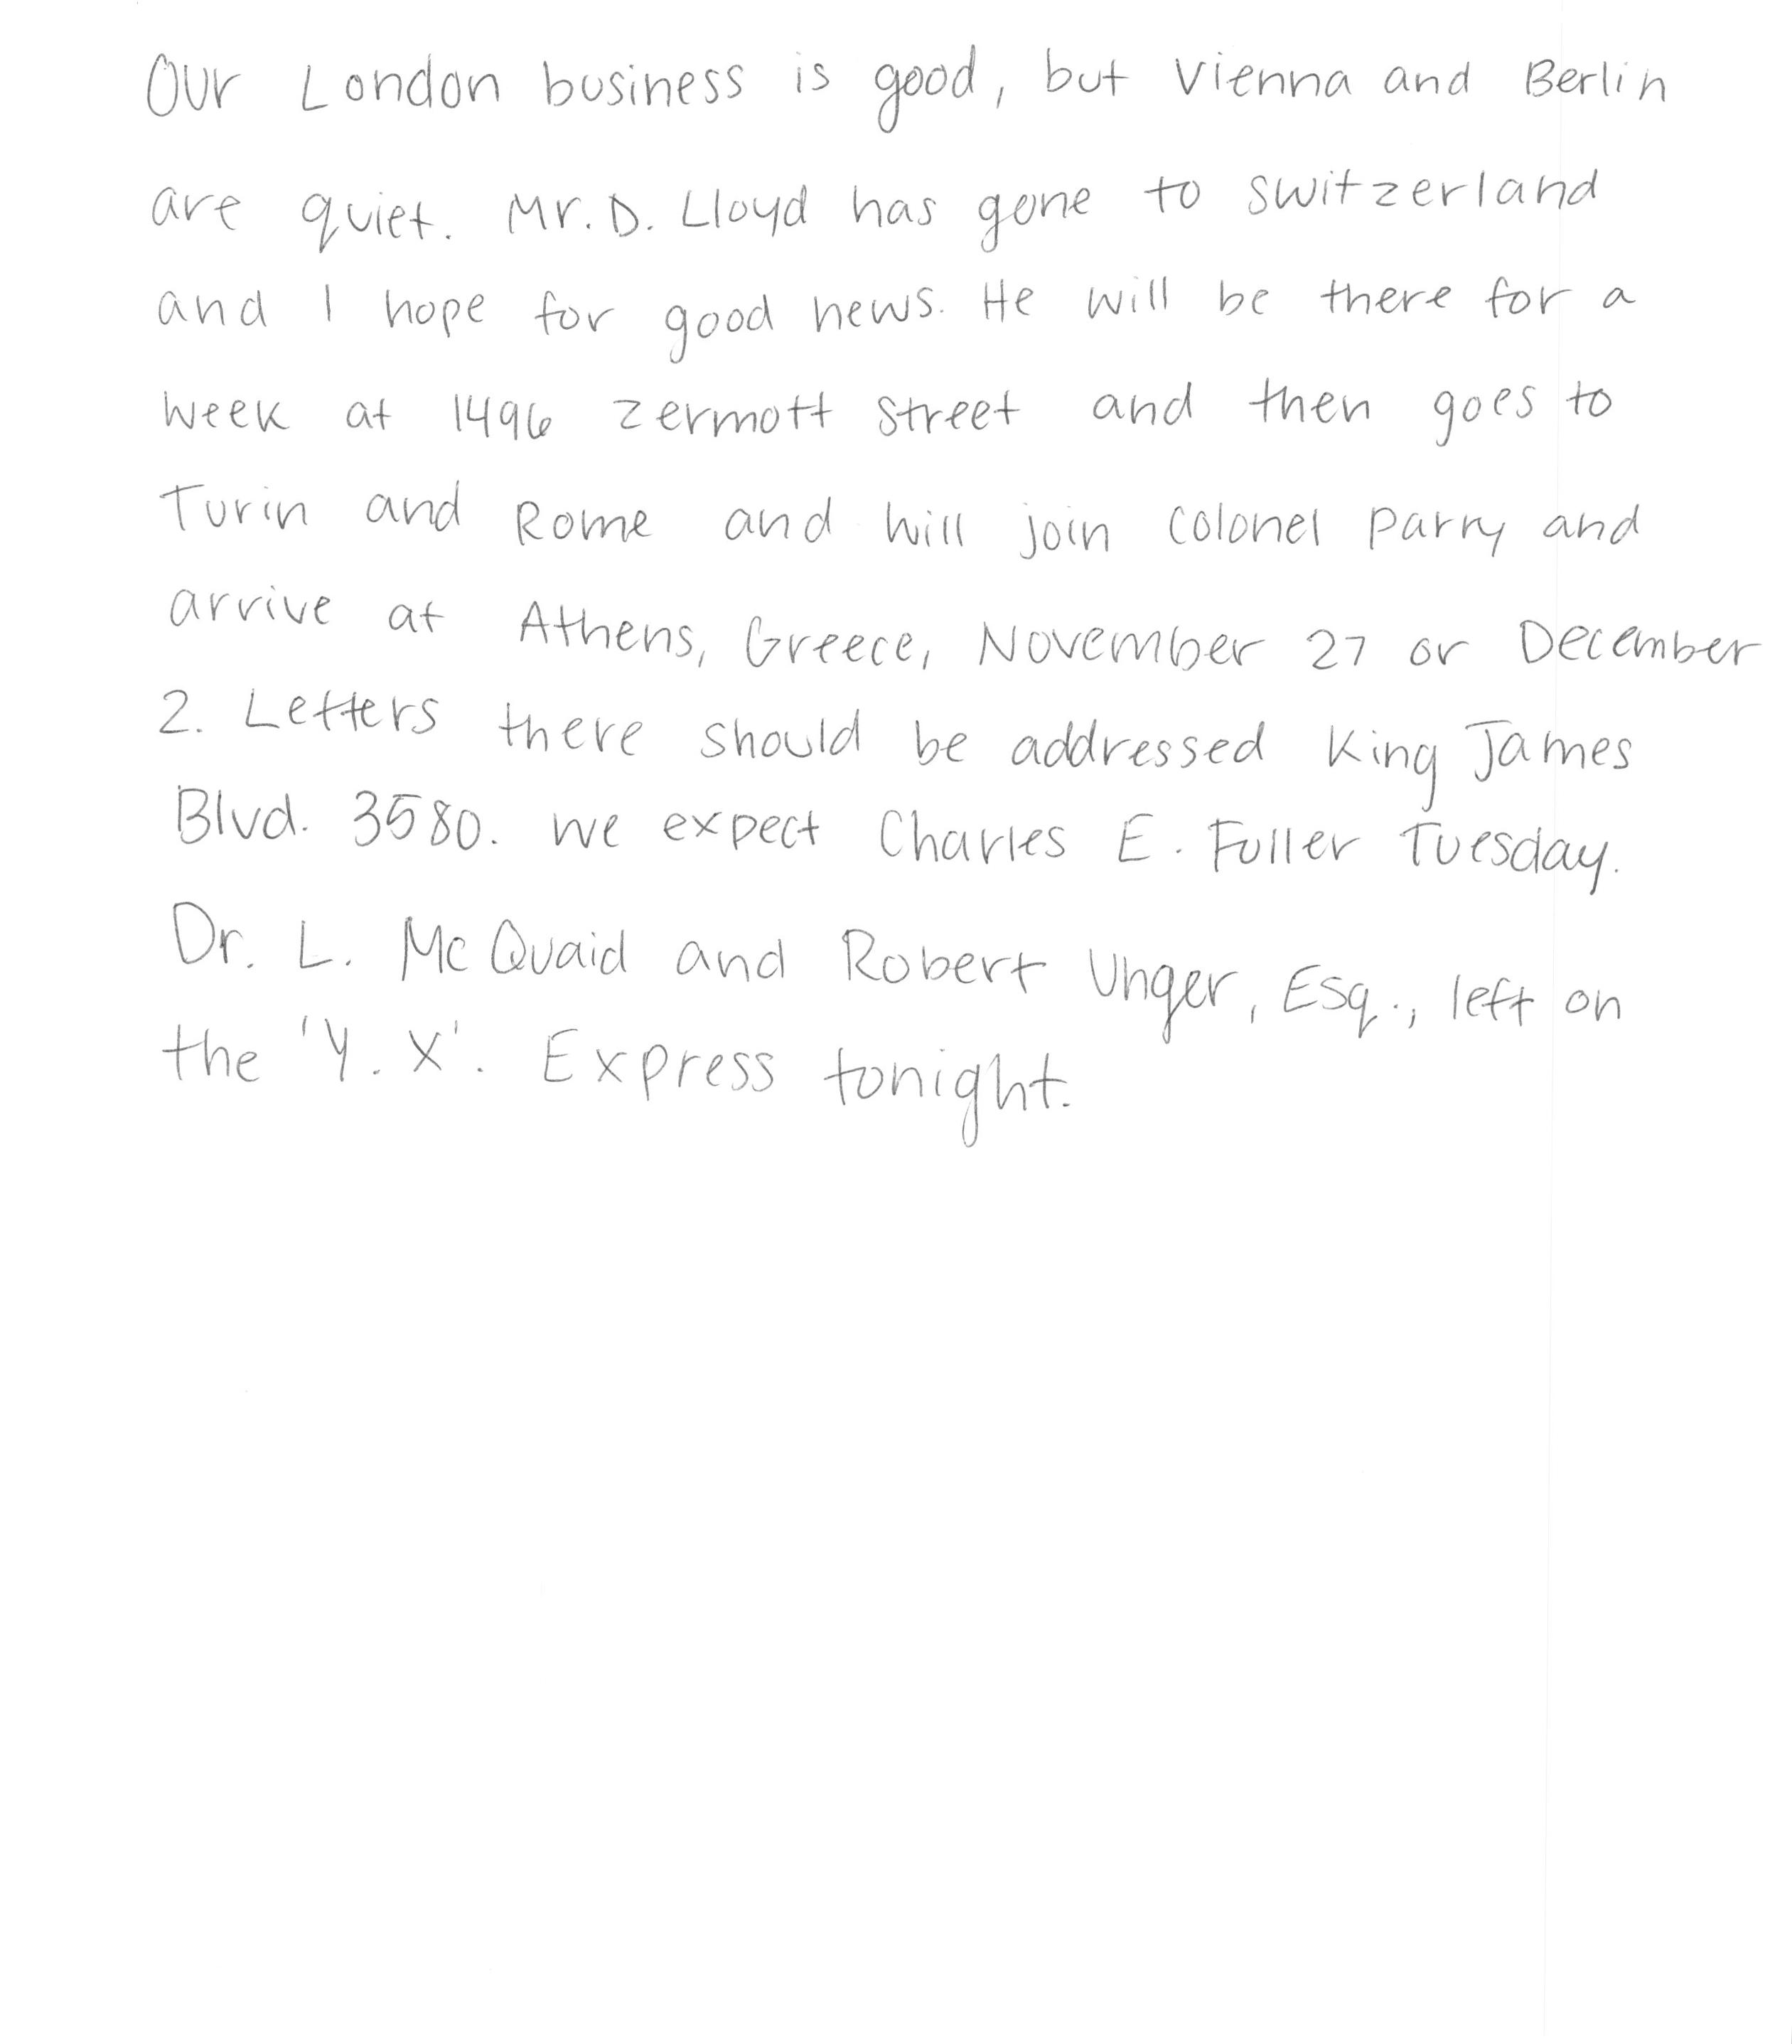 Our London business is good, but Vienna and Berlin
are quiet. Mr. D. Lloyd has gone to Switzerland
and I hope for good news. He will be there for a
week at 1496 Zermott Street and then goes to
Turin and Rome and will join Colonel Parry and
arrive at Athens, Greece, November 27 or December
2. Letters there should be addressed King James
Blvd. 3580. We expect Charles E. Fuller Tuesday.
Dr. L. McQuaid and Robert Unger, Esq., left on
the 'Y. X'. Express tonight.